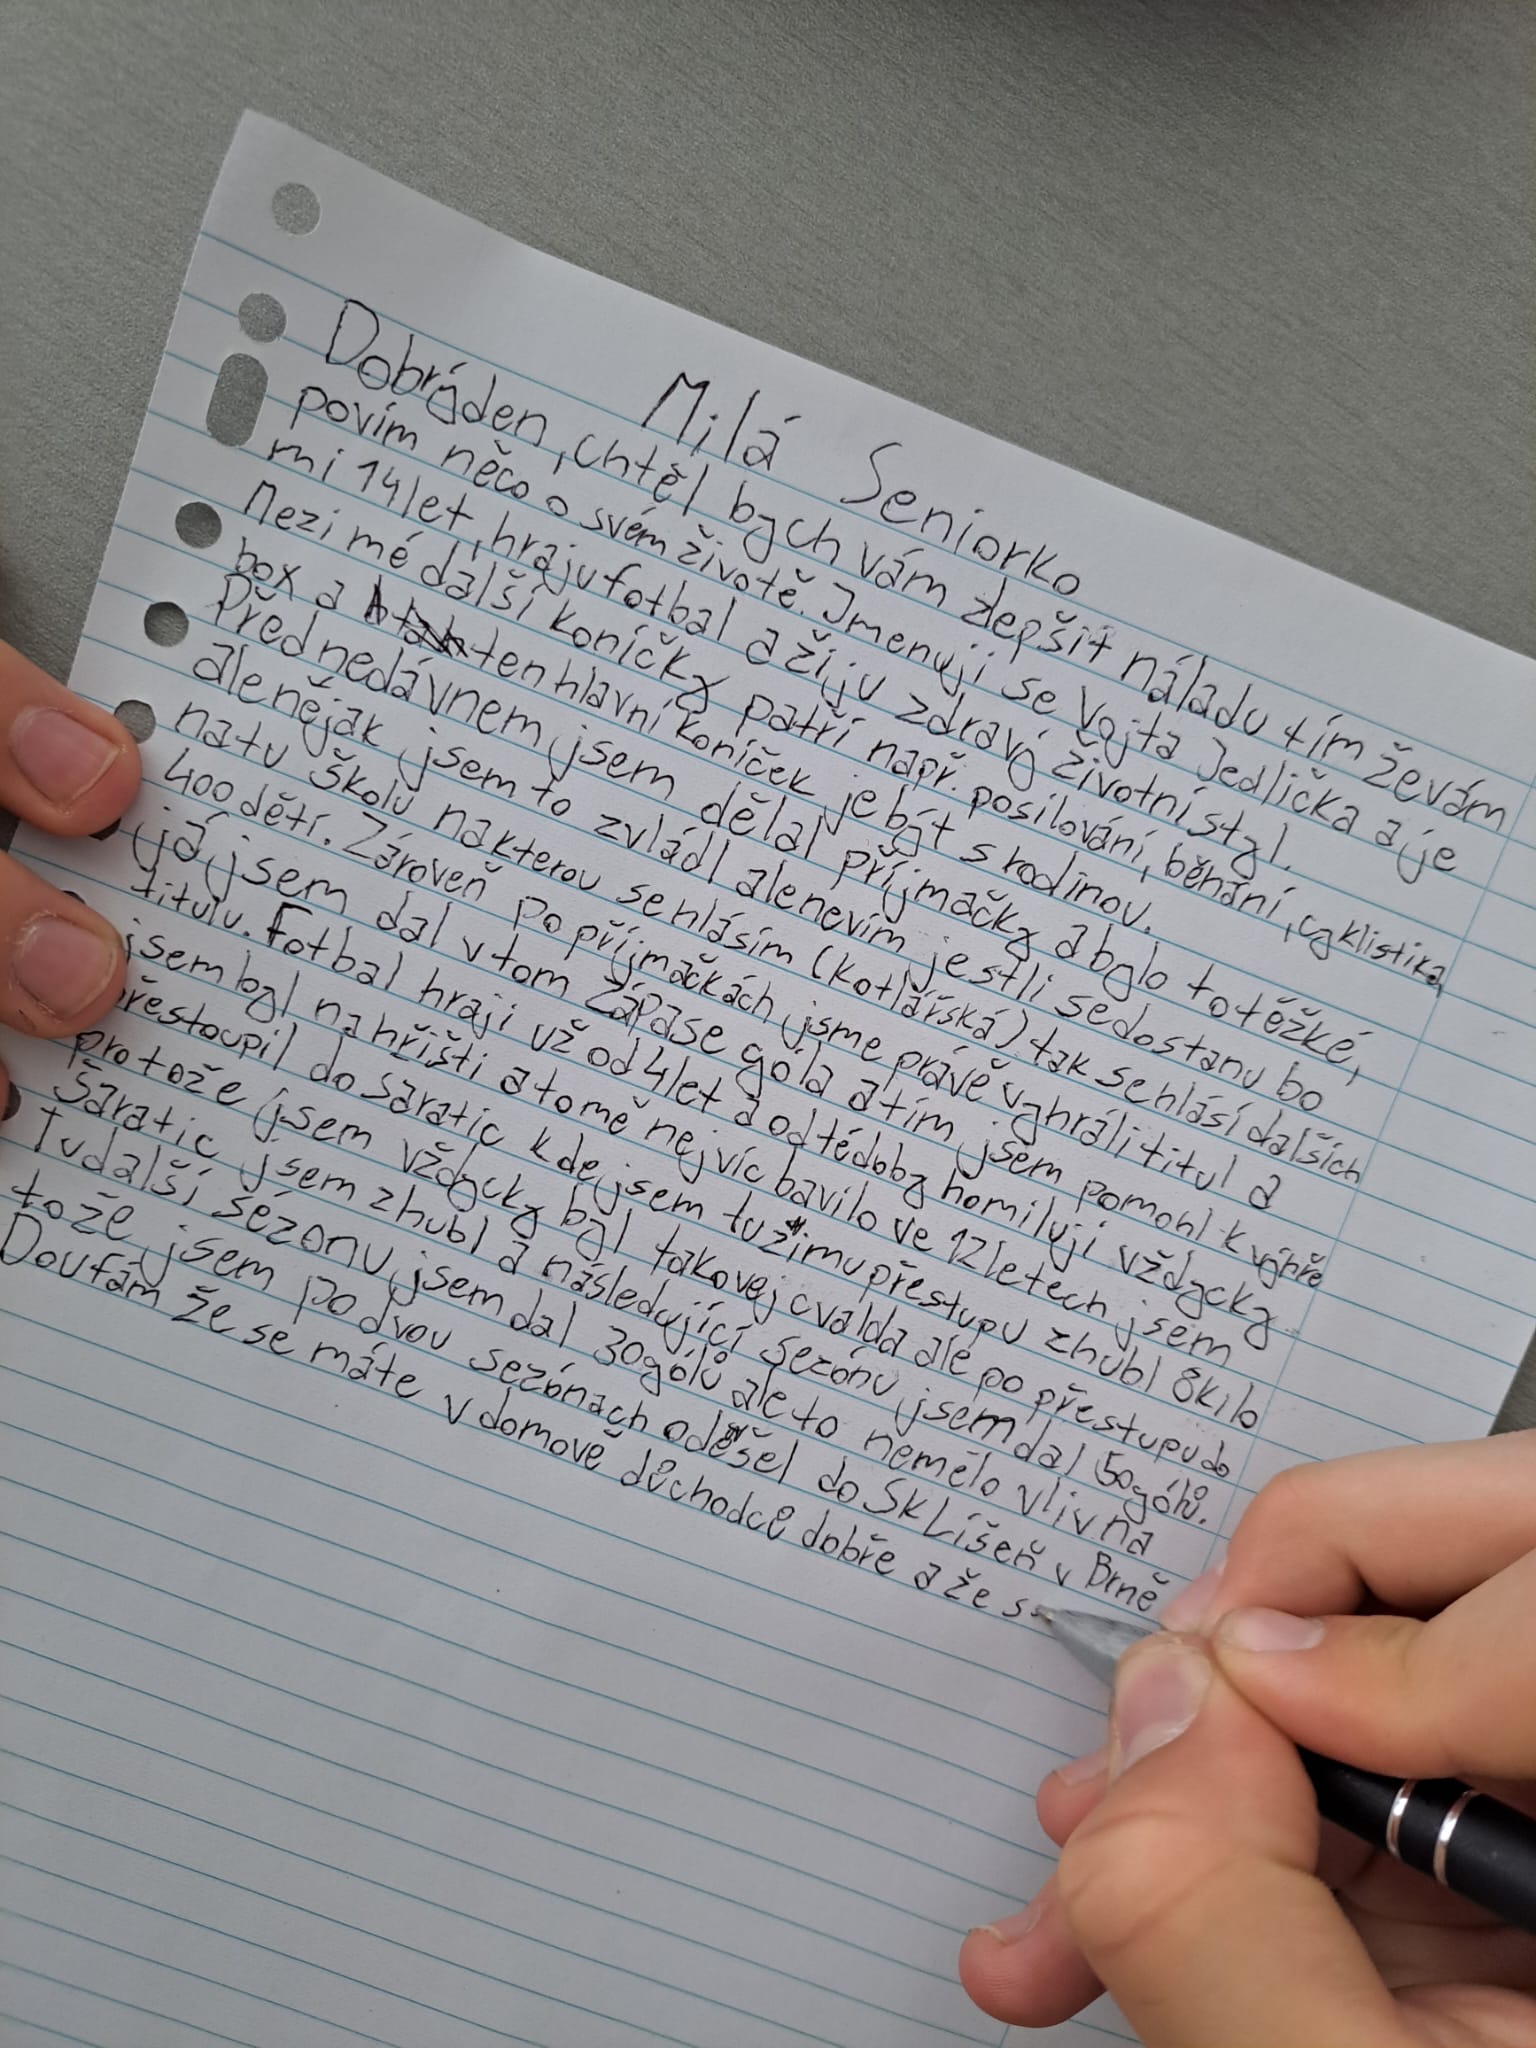 Milá Seniorko
Dobrýden, chtěl bych vám zlepšit náladu tím ževám
povím něco o svém životě. Jmenuji se Vojta Jedlička a je
mi 14let, hraju fotbal a žiju zdravý životní styl.
Mezi mé další koníčky patří např. posilování, běhání, cyklistika,
box a ten hlavní koníček je být s rodinou.
Přednedávnem jsem dělal příjmačky a bylo to těžké,
ale nějak jsem to zvládl ale nevím jestli se dostanu bo
na tu školu na kterou se hlásím (kotlářská) tak se hlásí dalších
400 dětí. Zároveň po příjmačkách jsme právě vyhráli titul a
já jsem dal v tom zápase góla a tím jsem pomohl k výhře
titulu. Fotbal hraji už od 4let a od tédoby ho miluji vždycky
jsem byl na hřišti a to mě nejvíc bavilo ve 12letech jsem
přestoupil do šaratic kde jsem tu zimu přestupu zhubl 8kilo
protože jsem vždycky byl takovej cvalda ale po přestupu do
Šaratic jsem zhubl a následující sezónu jsem dal 50gólů.
Tu další sézonu jsem dal 30gólů ale to nemělo vliv na
to že jsem po dvou sezónách odešel do SK Líšeň v Brně
Doufám že se máte v domově důchodců dobře a že